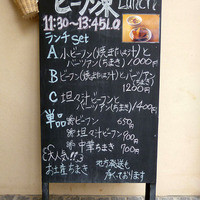 ビーフン東 Lunch
11:30~13:45L.O
ランチset
A 小ビーフン(焼または汁)と
バーツアン(ちまき) 1000円
B ビーフン(焼または汁)と バーツアン(ちまき)
1200円
C 坦々汁ビーフンと
バーツアン(ちまき) 1400円
単品
ビーフン 650円
坦々汁ビーフン 900円
中華ちまき 700円
大人気!!
お土産ちまき 地方発送も
承っております